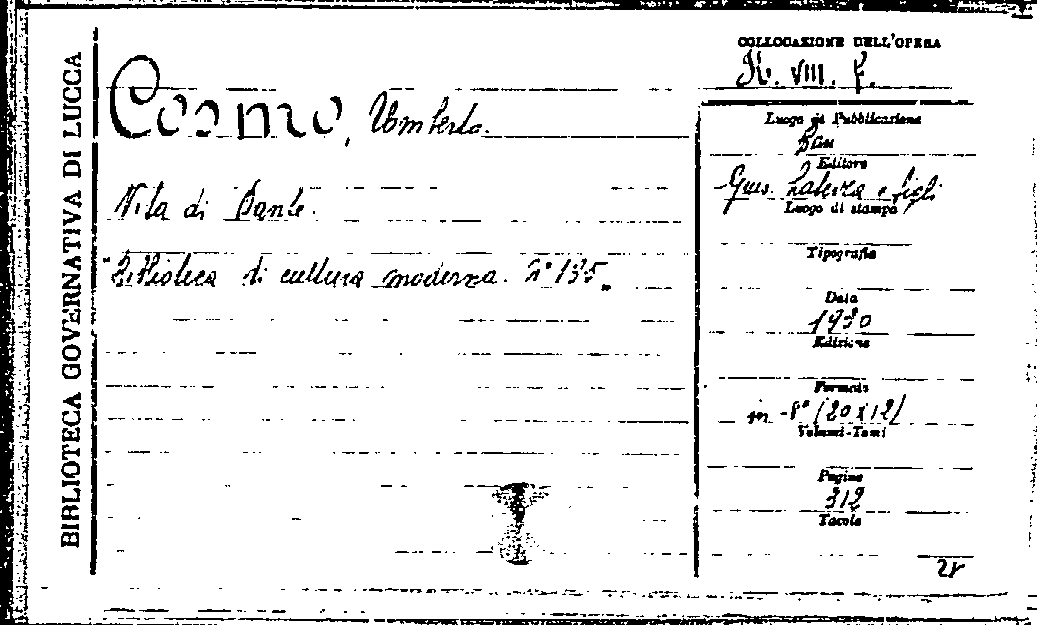 BIBLIOTECA GOVERNATIVA DI LUCCA
Cosmo, Umberto.
Vita di Dante.
"Biblioteca di cultura moderna. N° 135"
COLLOCAZIONE DELL'OPERA
K. VIII. f.
Luogo di Pubblicazione
Bari
Editore
Gius. Laterza e figli
Luogo di stampa
Tipografia
Data
1930
Edizione
Formato
in -8° (20x12)
Volumi-Tomi
Pagine
312
Tavole